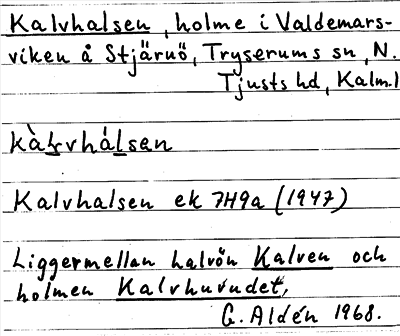 Kalvhalsen, holme i Valdemars-
viken å Stjärnö, Tryserums sn, N.
Tjusts hd, Kalm.l
kàl̠vhál̠sen
Kalvhalsen ek 7H9a (1947)
Liggermellan halvön Kalven och
holmen Kalvhuvudet,
G. Aldén 1968.